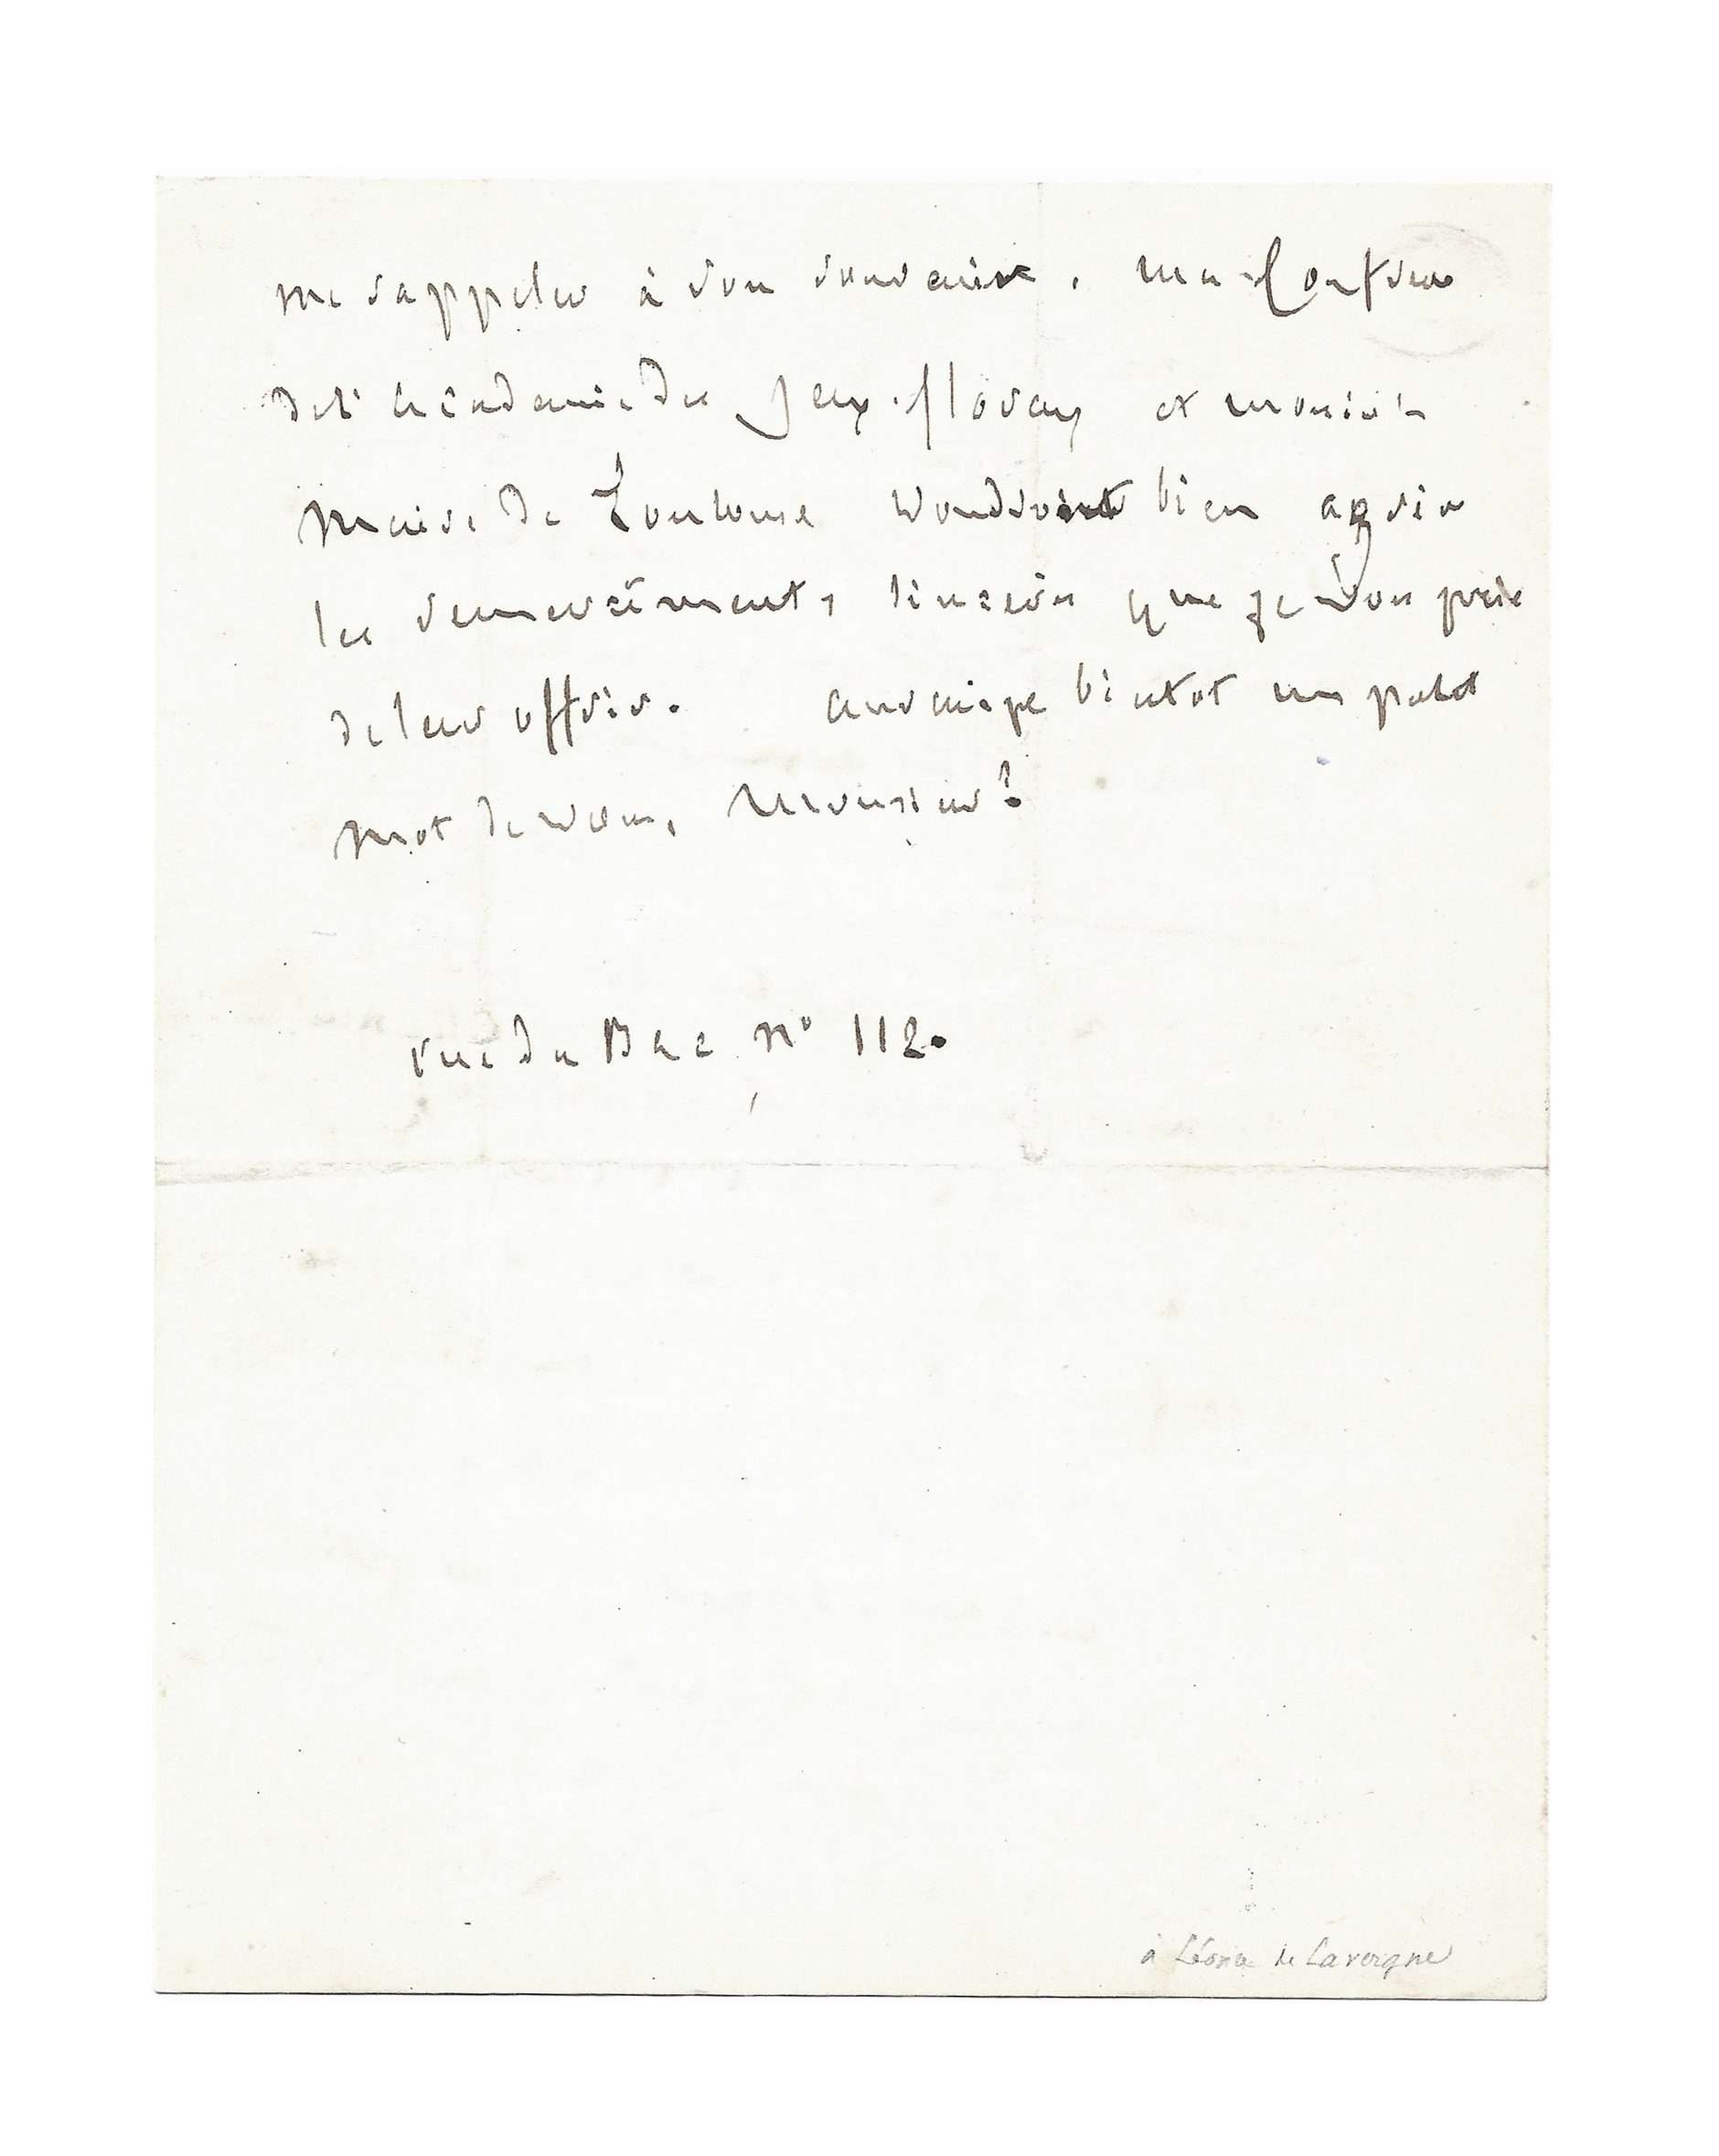 me rappeler à son souvenir. mes confreres
de l'académie des jeux-floraux et monsieur le
maire de Toulouse voudront bien agréer
les remercîments sincères que je vous prie
de leur offrir. aurai-je bientot un petit
mot de vous, monsieur?
rue du Bac n° 112.
à Léonce de Lavergne